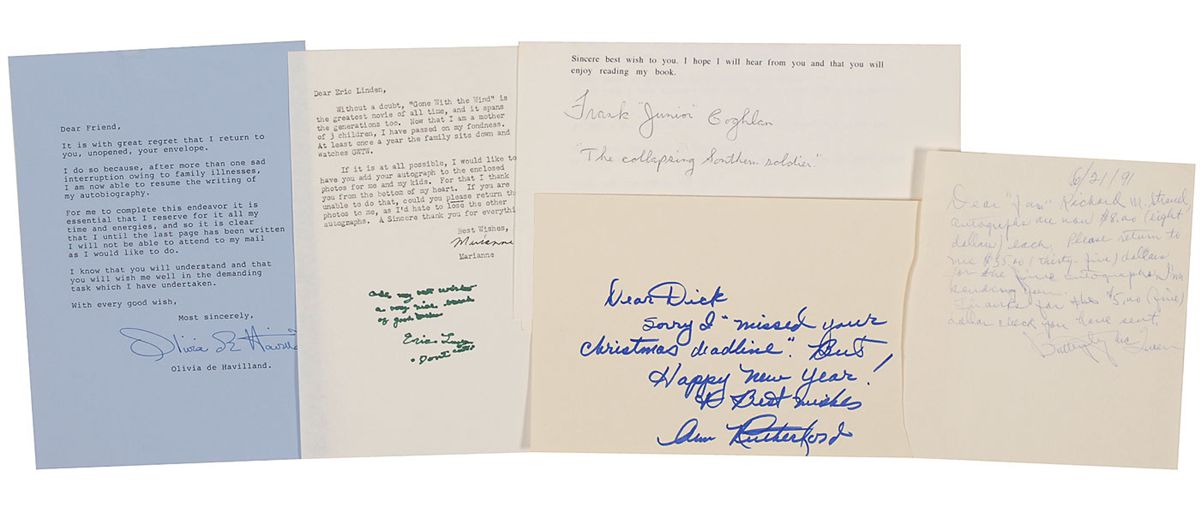 Dear Friend,
It is with great regret that I return to
you, unopened, your envelope.
I do so because, after more than one sad
interruption owing to family illnesses,
I am now able to resume the writing of
my autobiography.
For me to complete this endeavor it is
essential that I reserve for it all my
time and energies, and so it is clear
that I until the last page has been written
I will not be able to attend to my mail
as I would like to do.
I know that you will understand and that
you will wish me well in the demanding
task which I have undertaken.
With every good wish,
Most sincerely,
Olivia de Havilland
Olivia de Havilland.
Dear Eric Linden,
Without a doubt, "Gone With the Wind" is
the greatest movie of all time, and it spans
the generations too. Now that I am a mother
of 3 children, I have passed on my fondness.
At least once a year the family sits down and
watches GWTW.
If it is at all possible, I would like to
have you add your autograph to the enclosed
photos for me and my kids. For that I thank
you from the bottom of my heart. If you are
unable to do that, could you please return the
photos to me, as I'd hate to lose the other
autographs. A Sincere thank you for everythi
Best Wishes,
Marianne
Marianne
my best wishes
a very nice
of good
Eric
Sincere best wish to you. I hope I will hear from you and that you will
enjoy reading my book.
Frank "Junior" Coghlan
"The collapsing Southern soldier"
Dear Dick
Sorry I "missed your
Christmas deadline". But
Happy New Year!
Best Wishes
Ann Rutherford
6/21/91
Dear "Fan" Richard M.
autographs are now $8.00 (eight
dollars) each. Please return to
me $35.00 (thirty-five) dollars
for the five autographs I'm
sending you.
Thanks for the $5.00 (five)
dollar check you have sent,
Butterfly McQueen